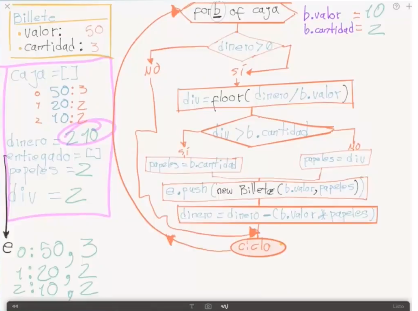 Billete
• valor: 50
• cantidad: 3
caja = []
0 50:3
1 20:2
2 10:2
dinero = 210
entregado = []
papeles = 2
div = 2
e 0:50, 3
1:20, 2
2:10, 2
for b of caja
dinero > 0
NO
SÍ
div = floor(dinero/b.valor)
div > b.cantidad
SÍ
NO
papeles = b.cantidad
papeles = div
e.push(new Billete(b.valor, papeles))
dinero = dinero - (b.valor * papeles)
ciclo
b.valor = 10
b.cantidad = 2